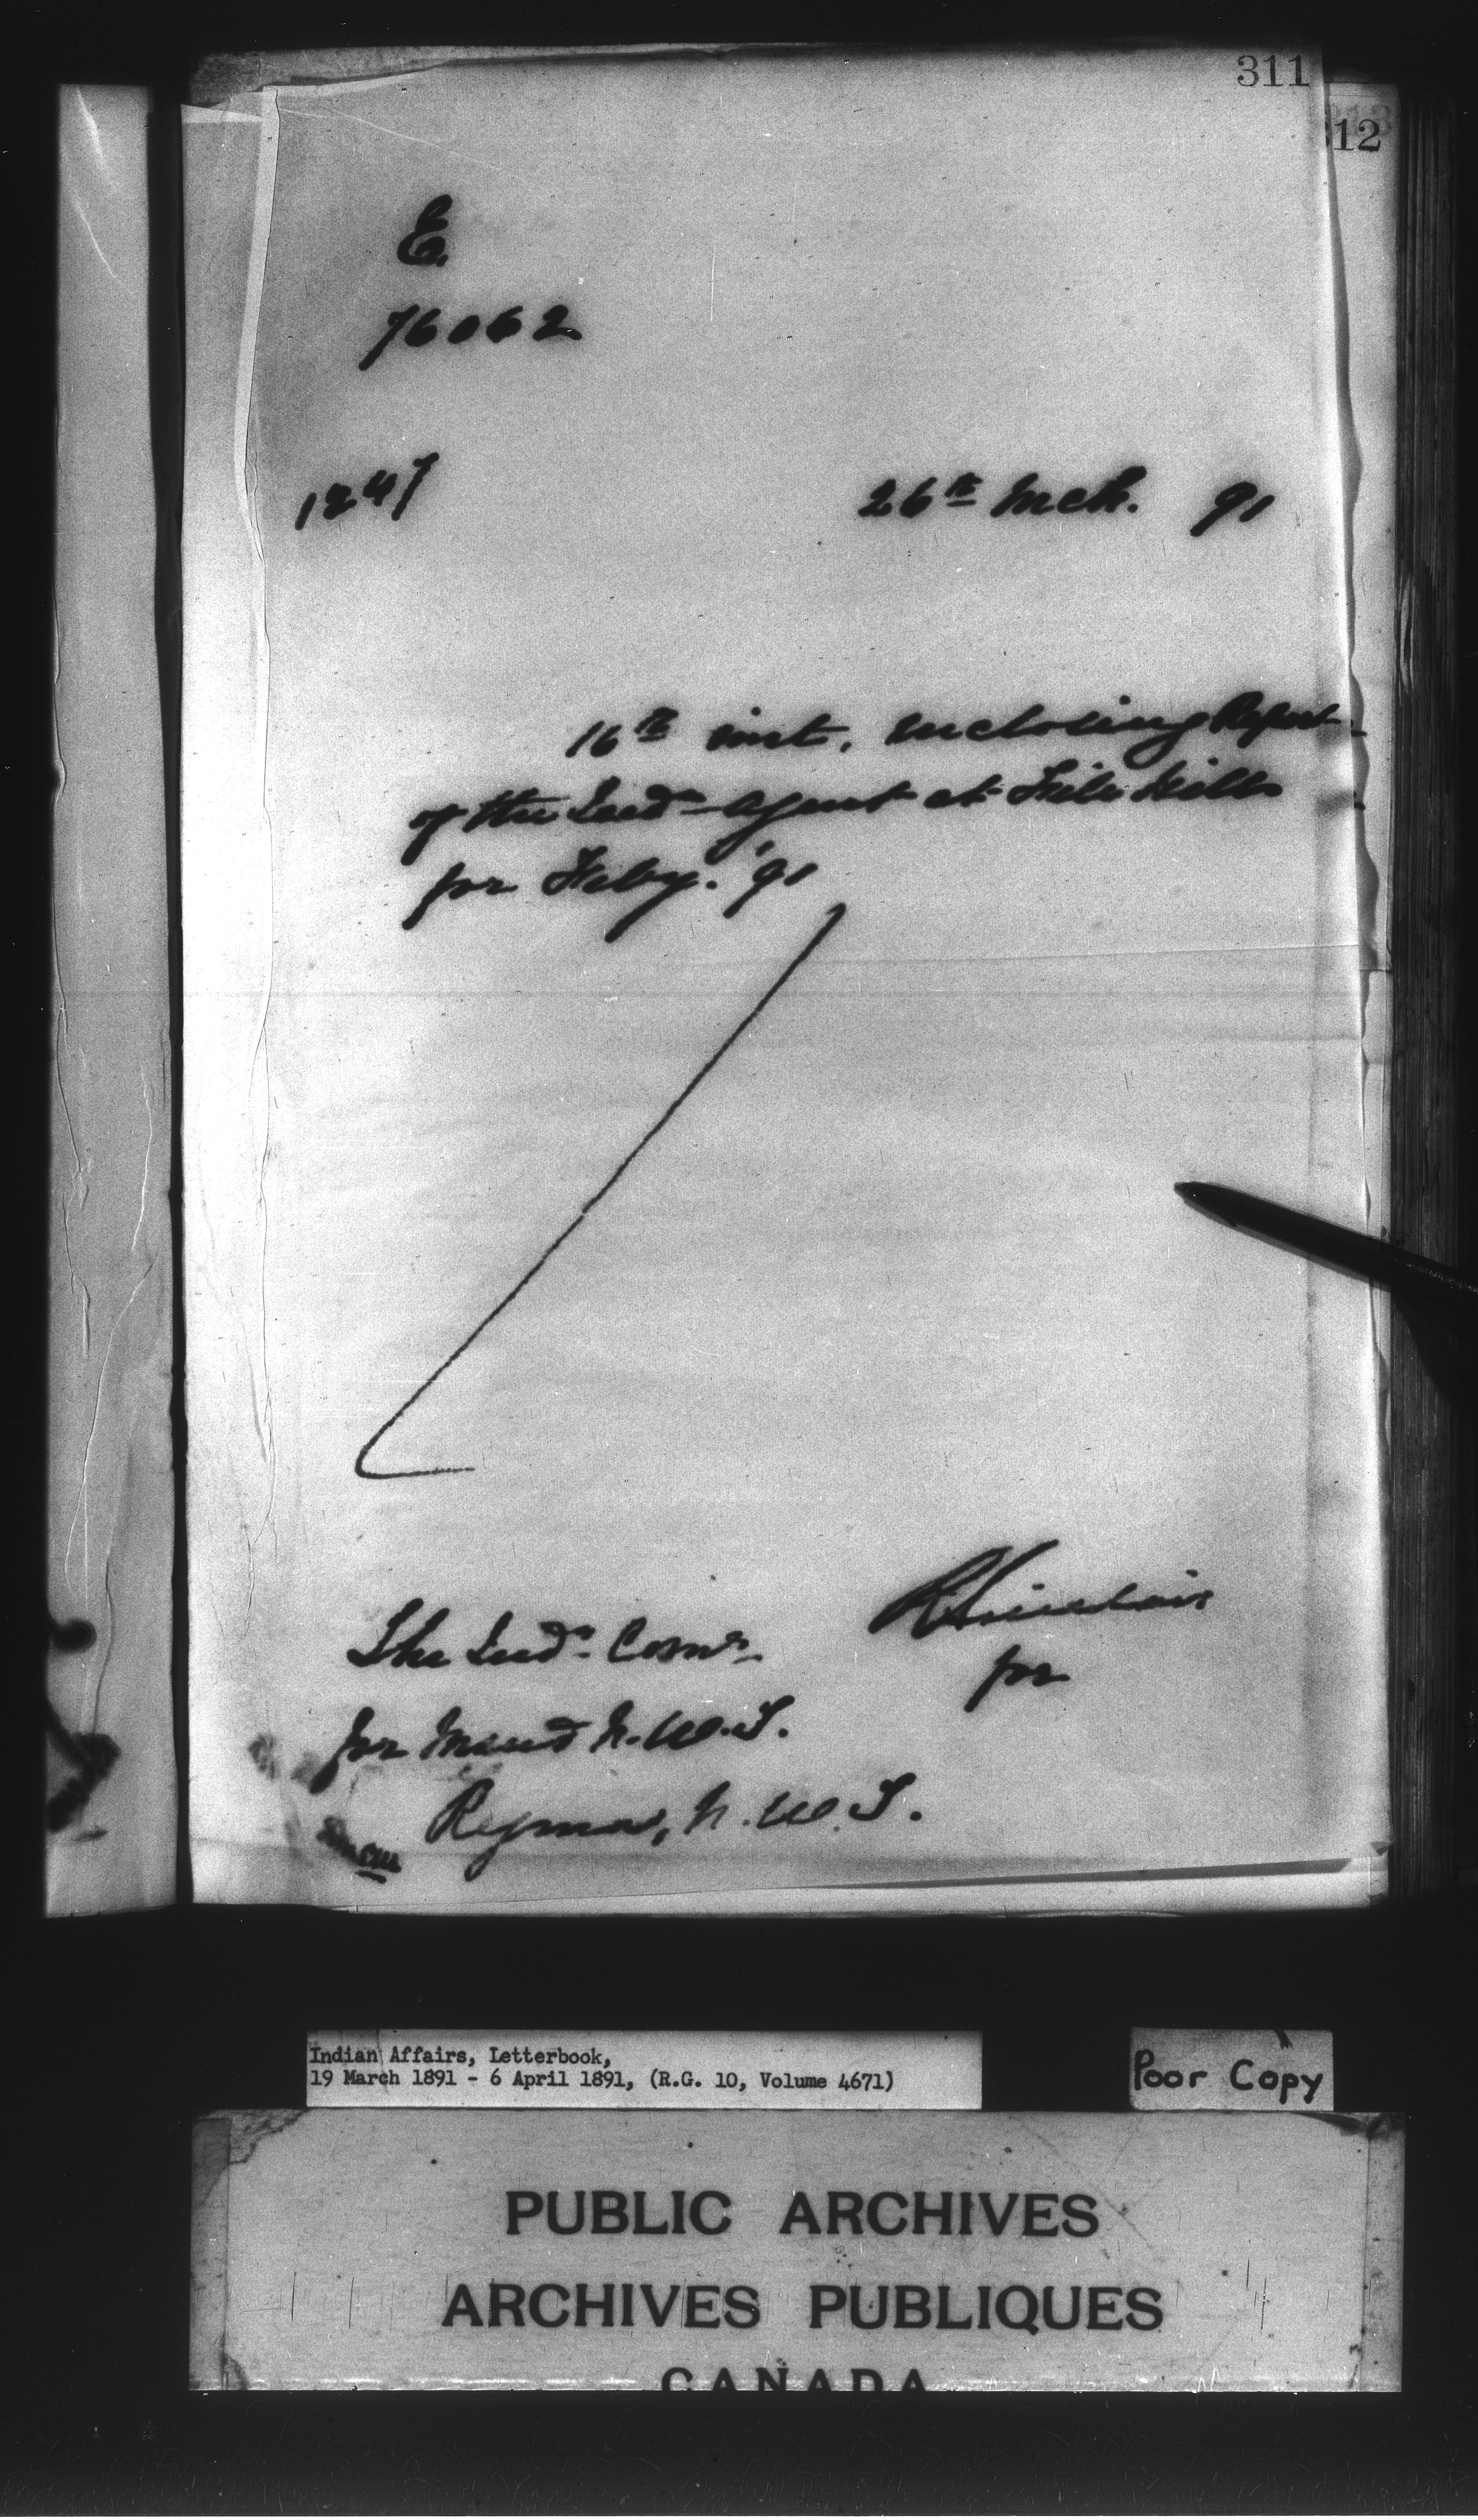 311
12
E.
76062
1247
26th Mch. 91
16th inst. enclosing Report
of the Indn Agent at File Hills
for Feby. '91
R Sinclair
for
The Indn Comr
for Man & N.W.T.
Regina, N.W.T.
Indian Affairs, Letterbook,
19 March 1891 - 6 April 1891, (R.G. 10, Volume 4671)
Poor Copy
PUBLIC ARCHIVES
ARCHIVES PUBLIQUES
CANADA